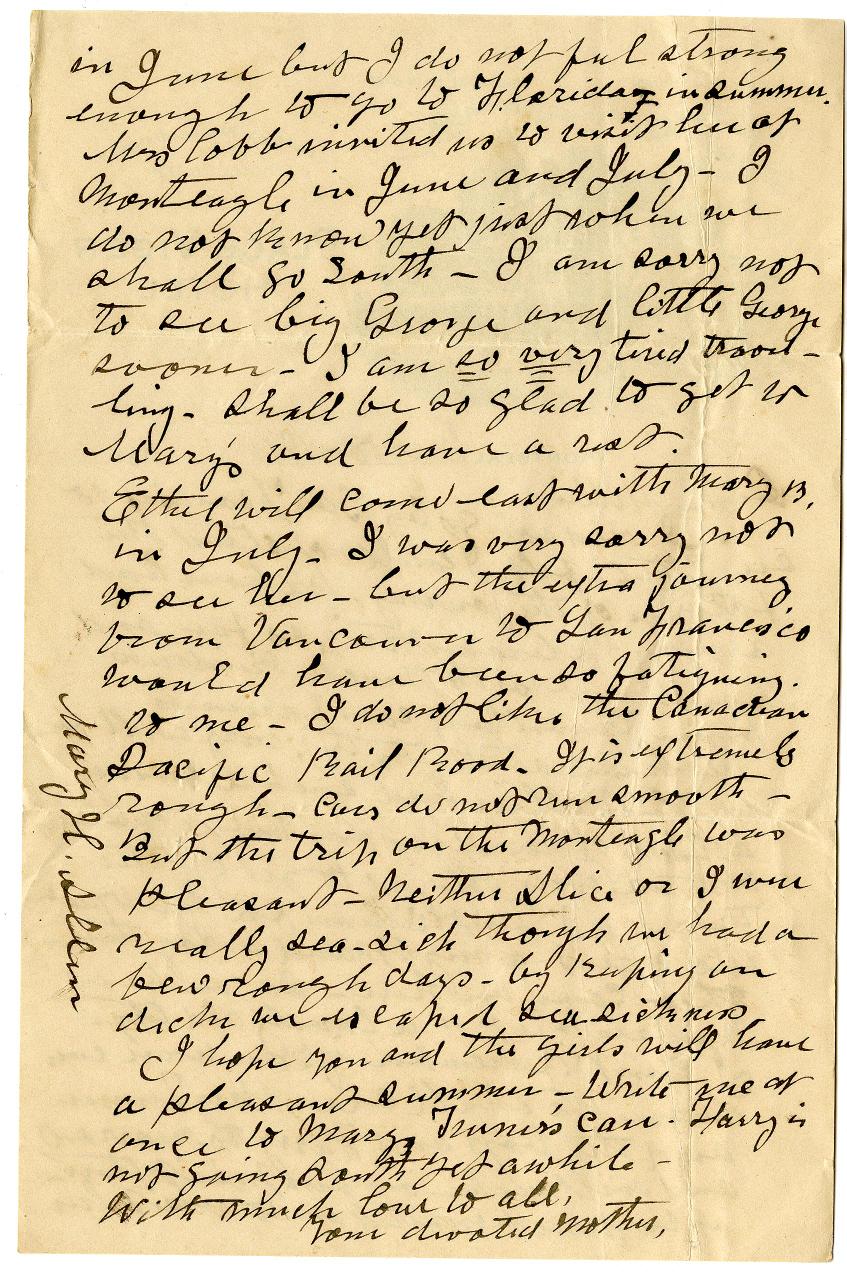 in June but I do not feel strong
enough to go to Florida in summer.
Mrs Cobb invited us to visit her at
Monteagle in June and July - I
do not know yet just when we
shall go South - I am sorry not
to see big George and little George
sooner - I am so very tired travel-
ling - shall be so glad to get to
Mary's and have a rest.
Ethel will come east with Mary B.
in July - I was very sorry not
to see her - but the extra journey
from Vancouver to San Francisco
would have been so fatiguing.
to me - I do not like the Canadian
Pacific Rail Road. It is extremely
rough - cars do not run smooth -
But the trip on the Monteagle was
pleasant - Neither Alice or I were
really sea-sick though we had a
few rough days - by keeping on
deck we escaped sea sickness
I hope you and the girls will have
a pleasant summer - Write me at
once to Mary Turner's care. Harry is
not going South yet awhile -
With much love to all,
Your devoted Mother,
Mary H. Allen